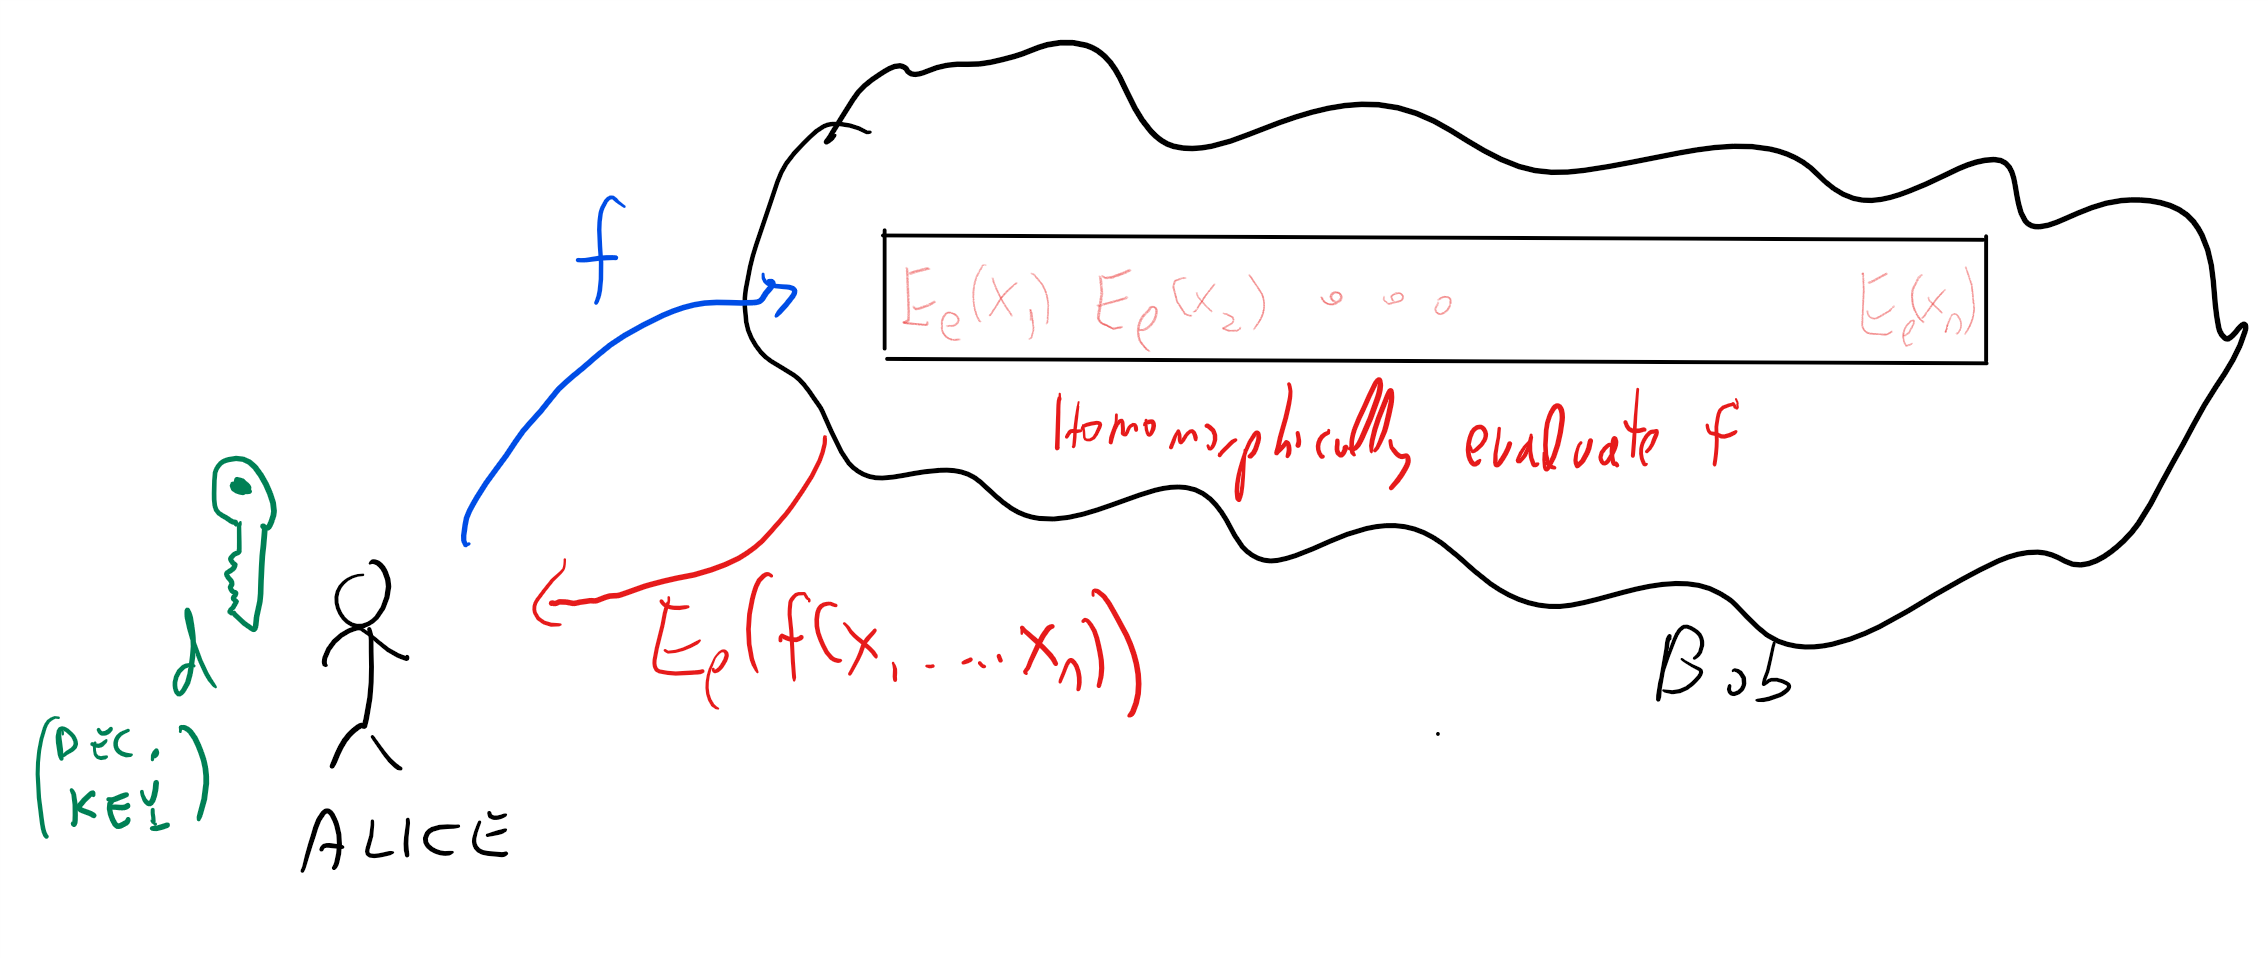 f
E_e(x_1) E_e(x_2) ∘ ∘ ∘ E_e(x_n)
Homomorphically evaluate f
E_e(f(x_1.....x_n))
Bob
d
(DEC.
KEY)
ALICE